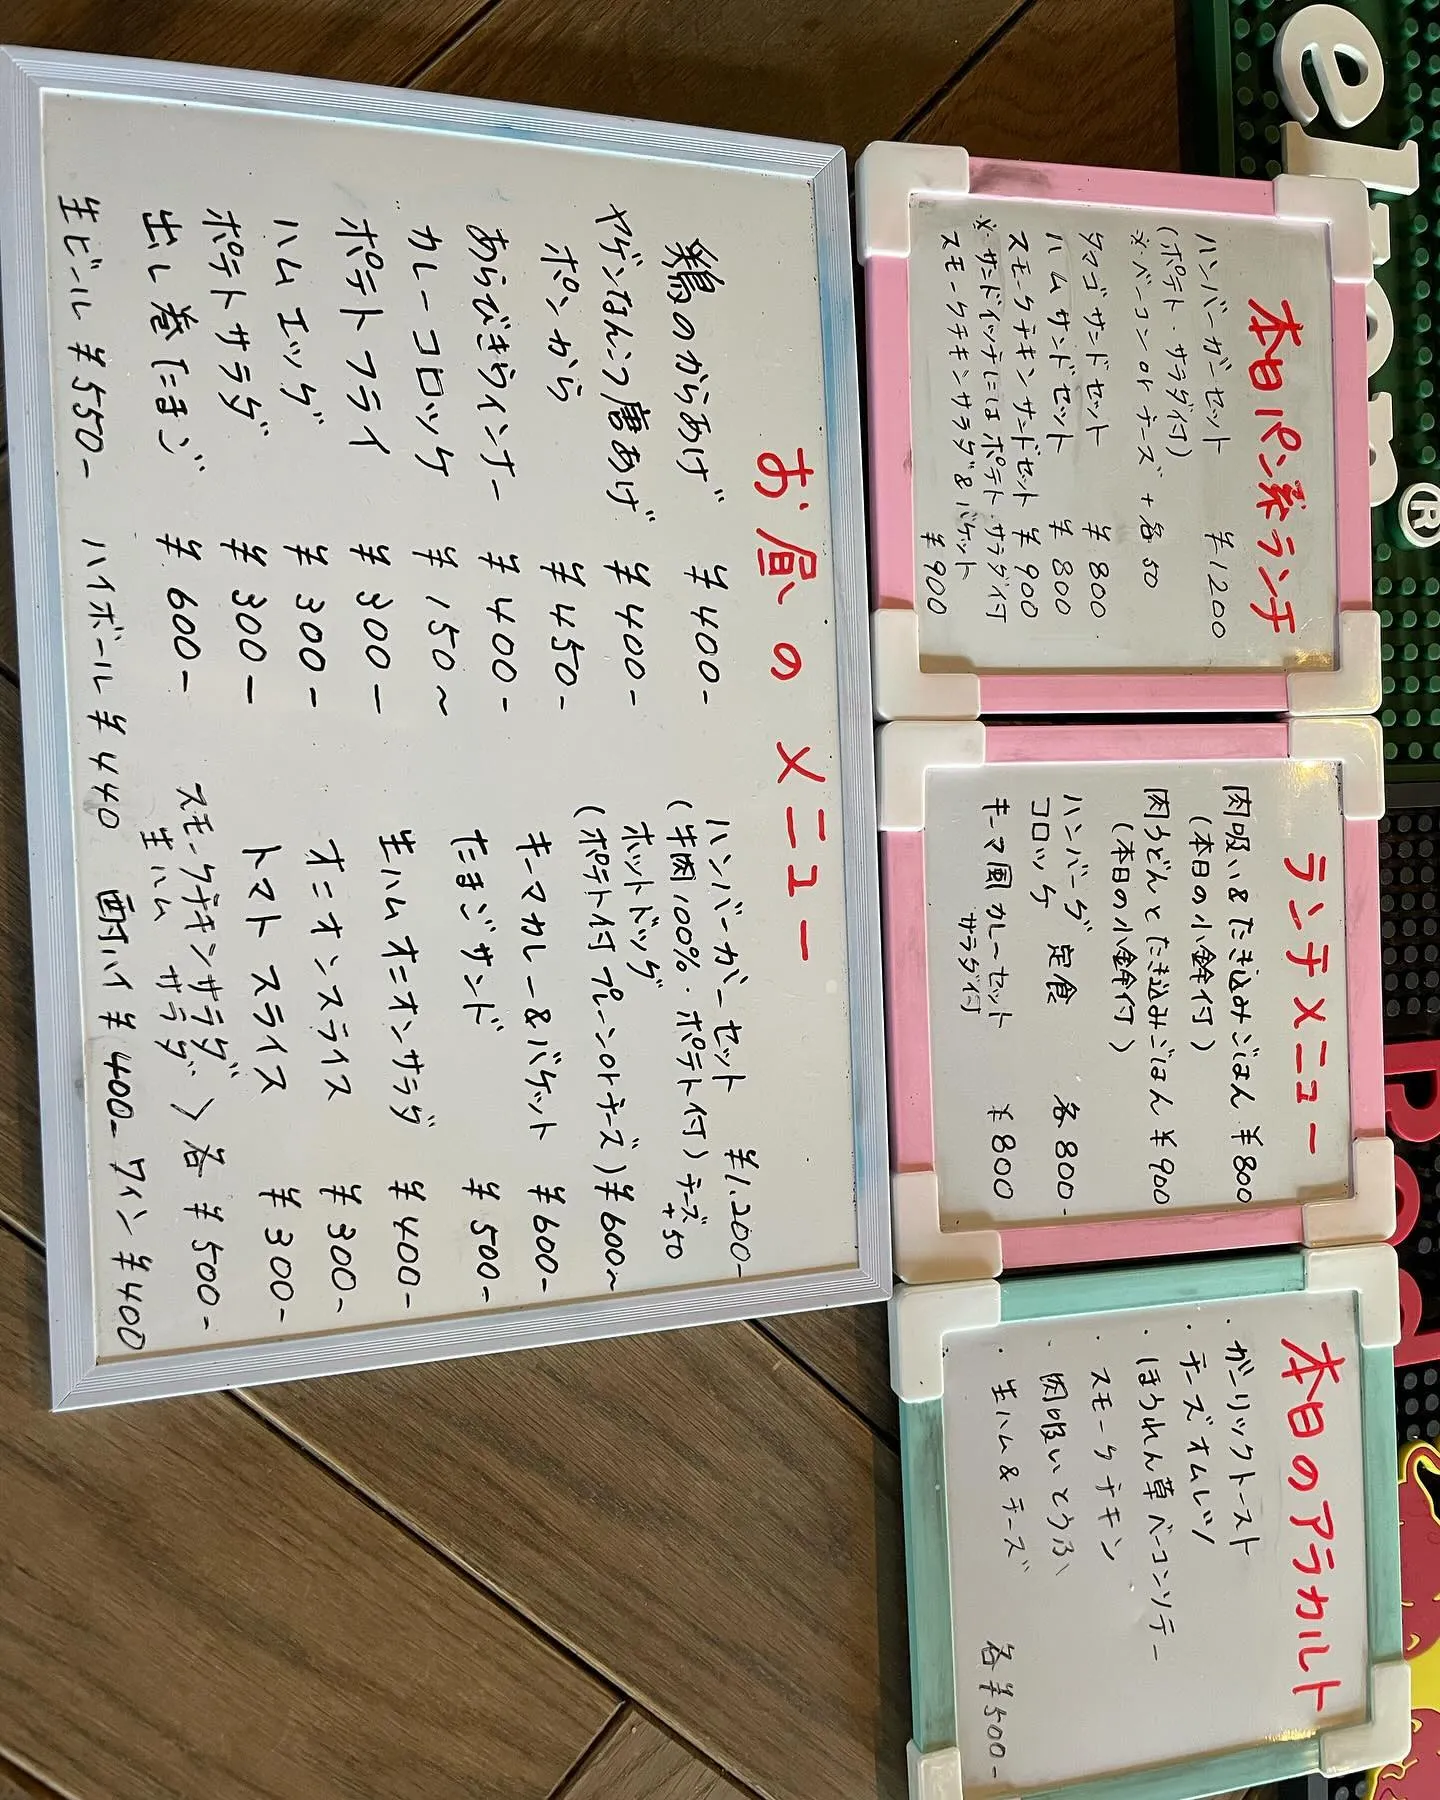 本日パン系ランチ
ハンバーガーセット ¥1200
(ポテト・サラダ付)
※ベーコンorチーズ +各50
タマゴサンドセット ¥800
ハムサンドセット ¥800
スモークチキンサンドセット ¥900
※サンドイッチにはポテト・サラダ付
スモークチキンサラダ&バケット ¥900
ランチメニュー
肉吸い&たき込みごはん ¥800
(本日の小鉢付)
肉うどんとたき込みごはん ¥900
(本日の小鉢付)
ハンバーグ定食
コロッケ 各800-
キーマ風カレーセット ¥800
サラダ付
本日のアラカルト
・ガーリックトースト
・チーズオムレツ
・ほうれん草ベーコンソテー
・スモークチキン
・肉吸いとうふ
・生ハム&チーズ
各¥500-
お昼のメニュー
鶏のからあげ ¥400-
ヤゲンなんこつ唐あげ ¥400-
ポンから ¥450-
あらびきウインナー ¥400-
カレーコロッケ ¥150~
ポテトフライ ¥300-
ハムエッグ ¥300-
ポテトサラダ ¥300-
出し巻たまご ¥600-
ハンバーガーセット ¥1.200-
(牛肉100%・ポテト付) チーズ+50
ホットドッグ
(ポテト付 プレーンorチーズ) ¥600~
キーマカレー&バケット ¥600-
たまごサンド ¥500-
生ハムオニオンサラダ ¥400-
オニオンスライス ¥300-
トマトスライス ¥300-
スモークチキンサラダ
生ハム サラダ 〉各¥500-
生ビール ¥550- ハイボール ¥440 酎ハイ ¥400- ワイン ¥400
®